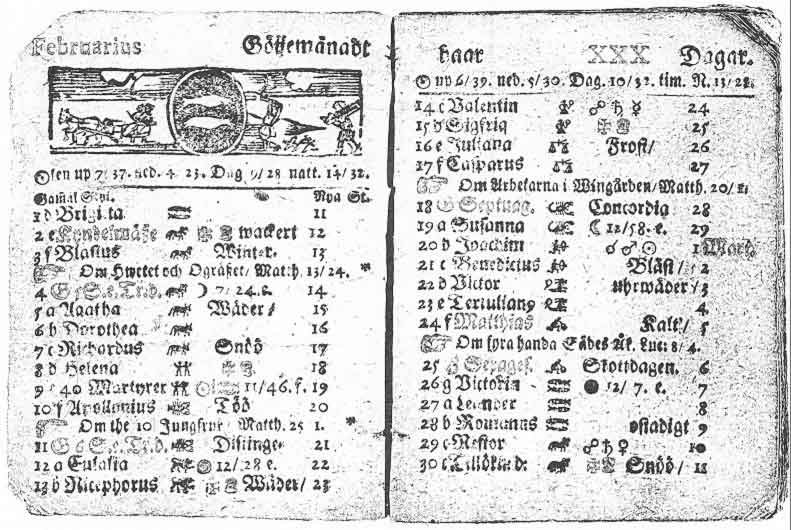 Februarius Göijemånadt
Olen up 7/37. ned. 4. 23. Dag 9/28 natt. 14/32.
Gamal Styl. Nya St.
1 d Brigi.ta 11
2 e Kyndelmässe wackert 12
3 f Blasius Winter. 13
Om Hwetet och Ogräset/ Matth. 13/24. *
4 G 5 S. e. Tr. d. 7/24. e. 14
5 a Agatha Wäder/ 15
6 b Dorothea 16
7 c Richardus Snöö 17
8 d Helena 18
9 e 40 Martyrer 11/46. f. 19
10 f Apollonius Töö 20
Om the 10 Jungfrur Matth. 25 1. *
11 G 6 S. e. Tr. d. Distinge 21
12 a Eulalia 12/28 e. 22
13 b Nicephorus Wäder/ 23
haar XXX Dagar.
up 6/39. ned. 5/30. Dag. 10/32. tim. N. 13/28.
14 c Valentin ☍ ♄ ☿ 24
15 d Sigfrid 25
16 e Juliana Frost/ 26
17 f Casparus 27
Om Arbetarna i Wingården/ Matth. 20/1.
18 G Septuag. Concordia 28
19 a Susanna ☾ 12/58. e. 29
20 b Joachim ☌ ♂ ☉ 1 Mart.
21 c Benedictus Bläst/ 2
22 d Victor uhrwäder/ 3
23 e Tertulian9 4
24 f Matthias Kalt/ 5
Om fyra handa Sädes Åk. Luc: 8/4.
25 G Sexages. Skottdagen. 6
26 g Victorin ● 12/7. e. 7
27 a Leander 8
28 b Romanus ostadigt 9
29 c Nestor ☍ ♄ ♀ 10
30 c Snöö/ 11